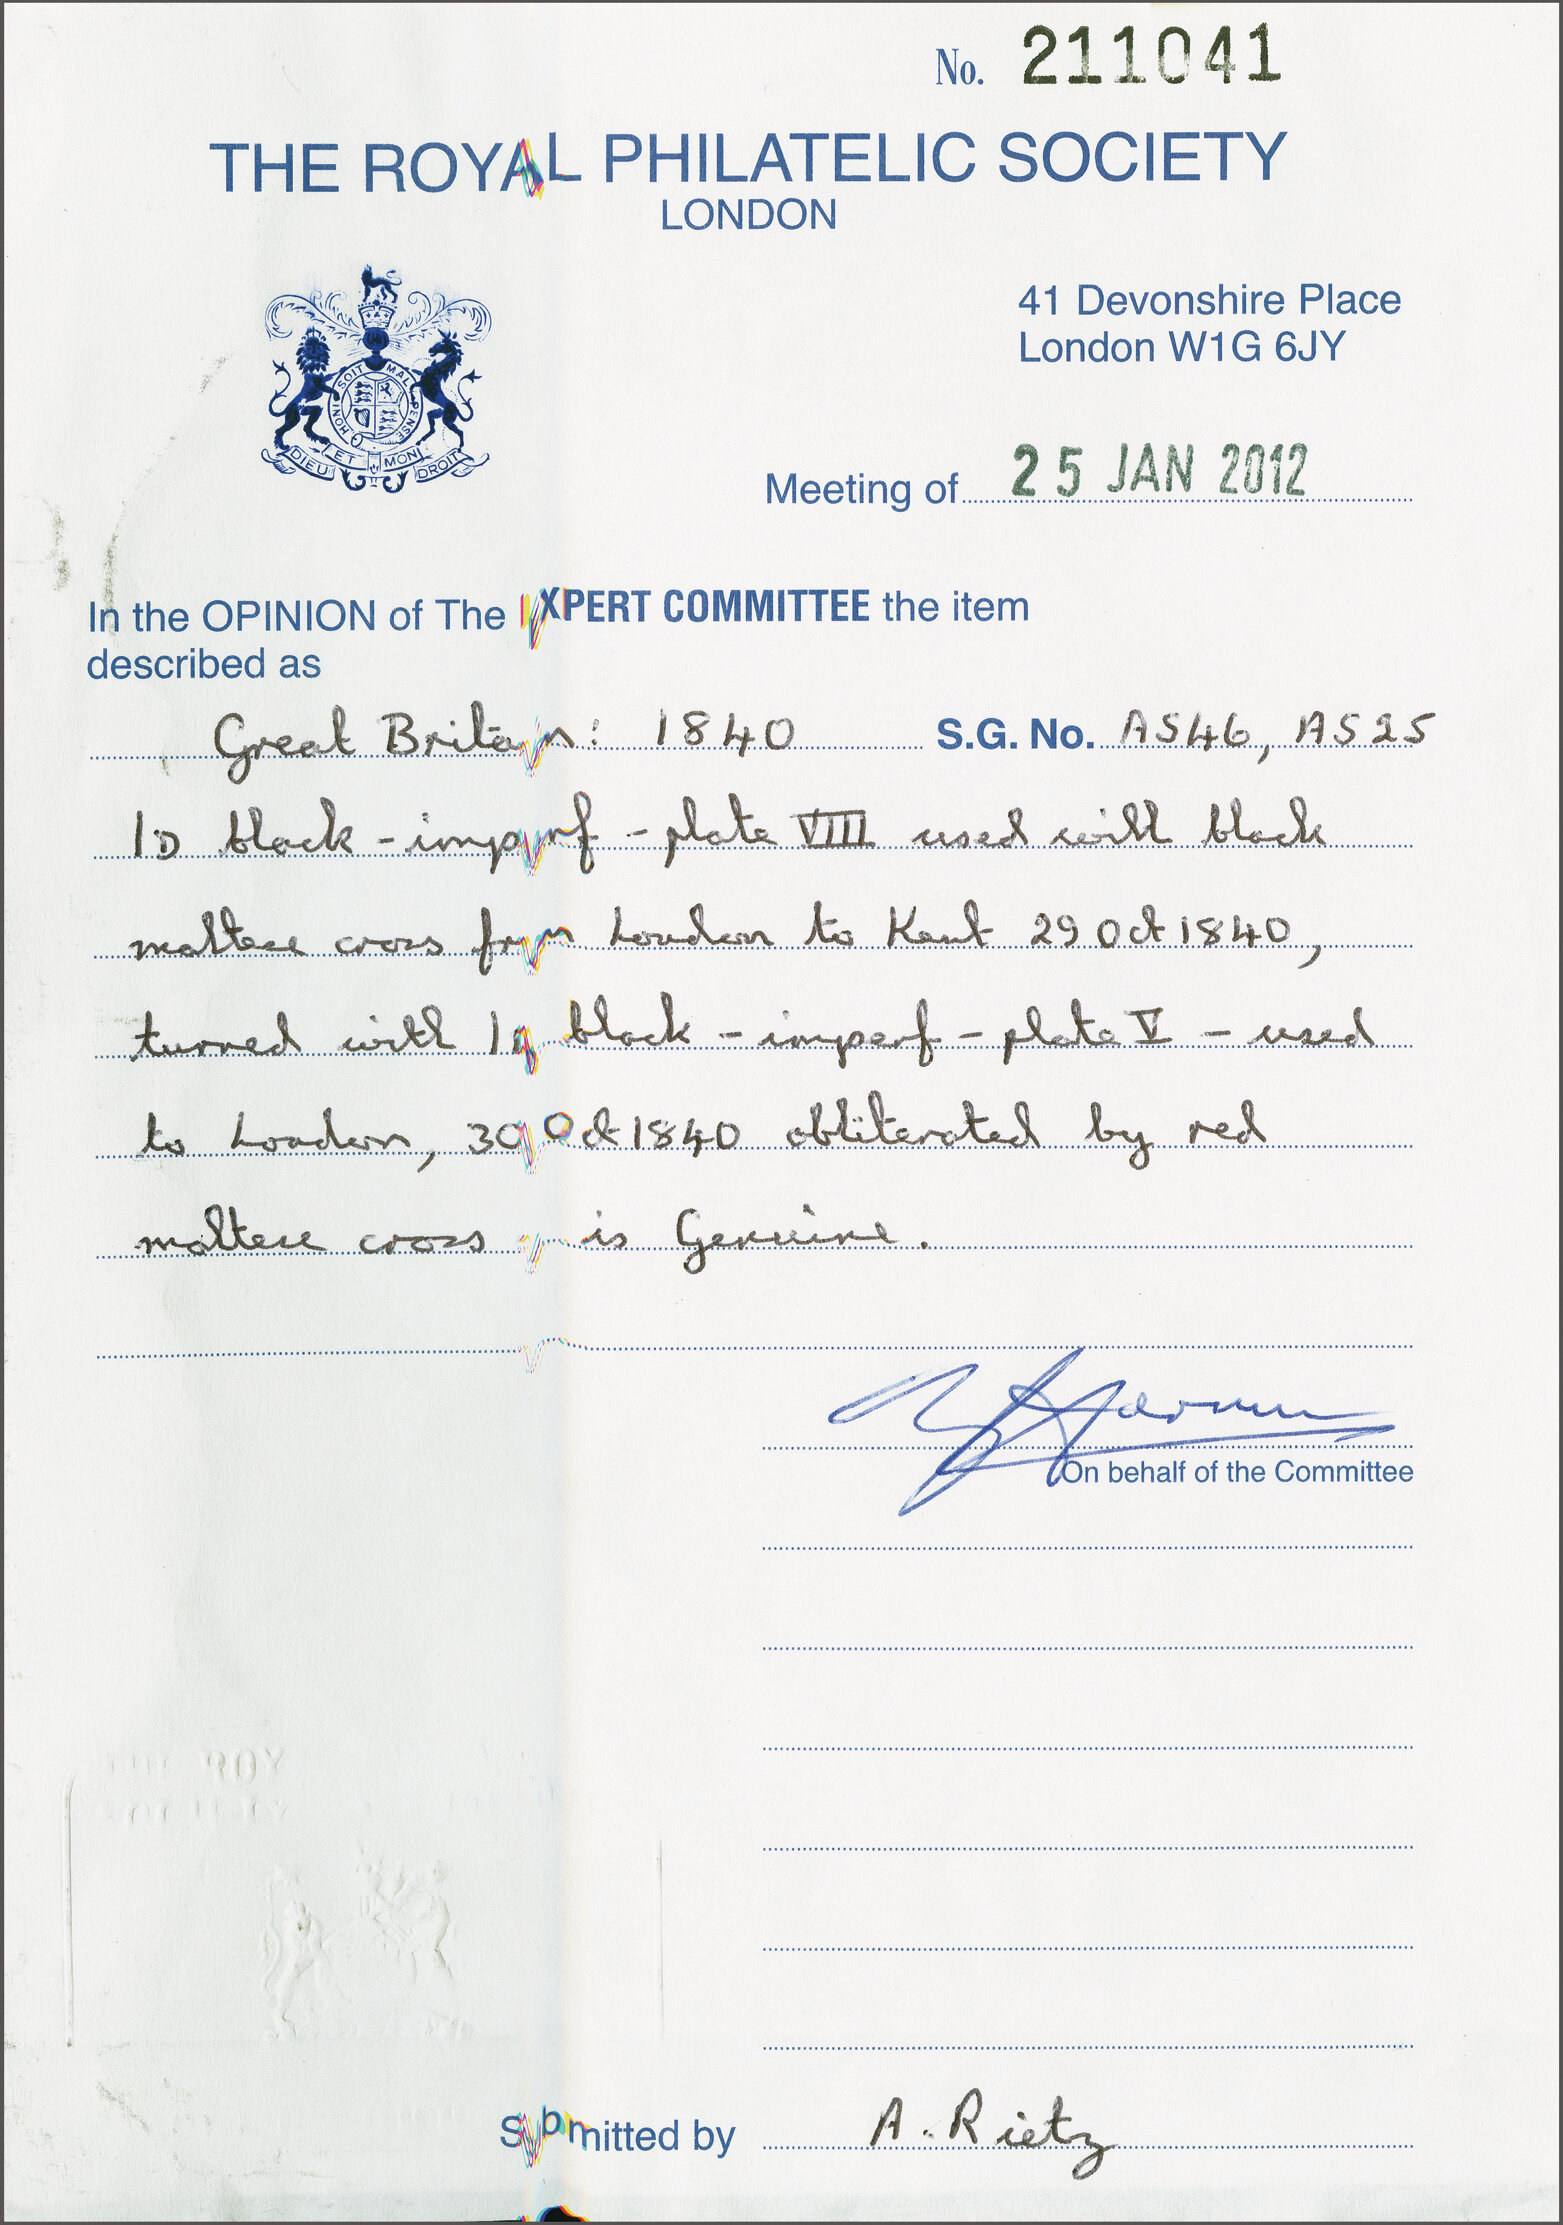 No. 211041
THE ROYAL PHILATELIC SOCIETY
LONDON
HONI SOIT MAL PENSE
DIEU ET MON DROIT
41 Devonshire Place
London W1G 6JY
Meeting of 25 JAN 2012
In the OPINION of The EXPERT COMMITTEE the item
described as
Great Britain: 1840 S.G. No. AS46, AS25
1D black - imperf - plate VIII used with black
maltese cross from London to Kent 29 Oct 1840,
turned with 1D black - imperf - plate V - used
to London, 30 Oct 1840 obliterated by red
maltese cross is Genuine.
On behalf of the Committee
Submitted by A. Rietz